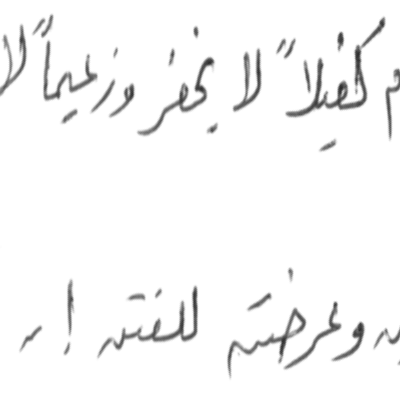 م كفيلاً لا يخفر وزعيماً لا
وعرضته للفتن إ